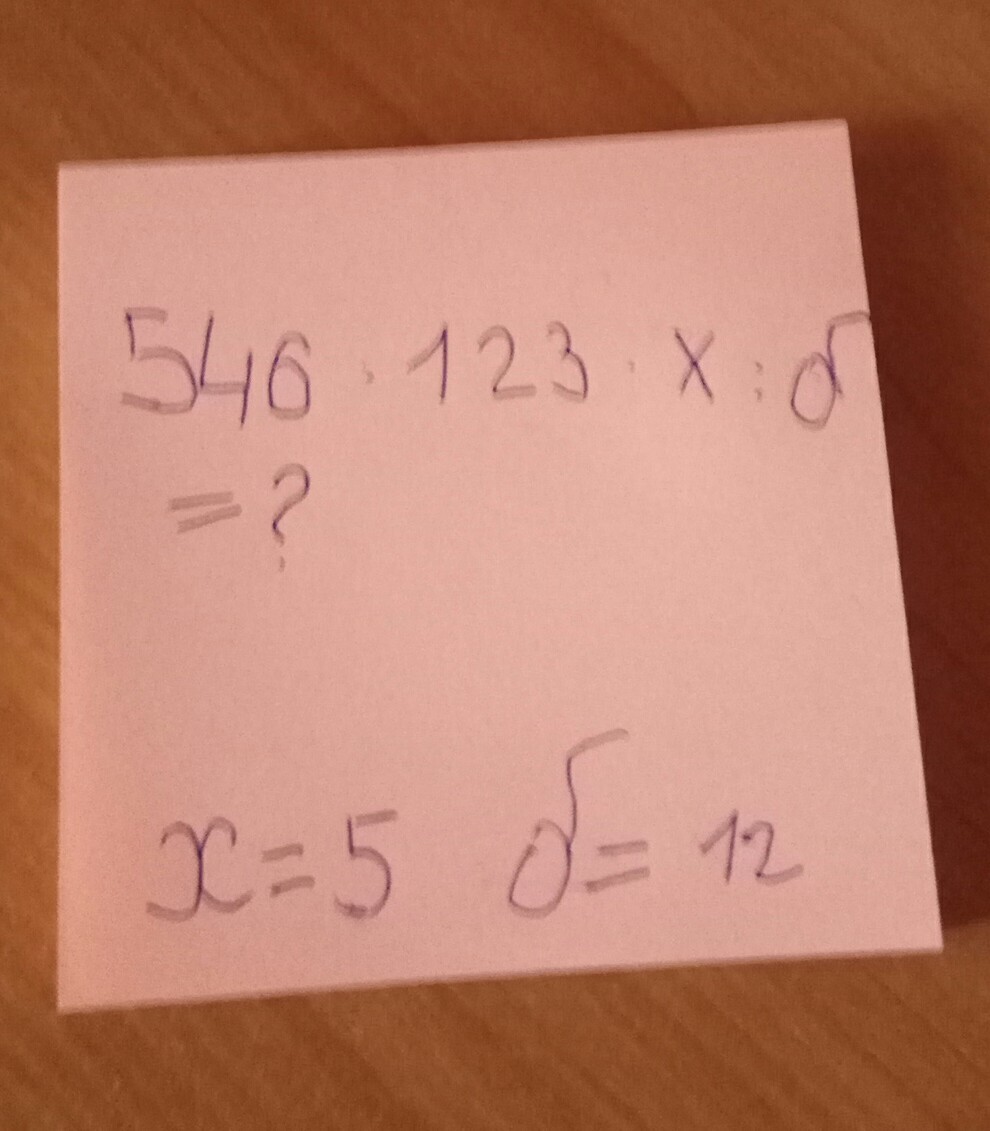 546 · 123 · x : σ
= ?
x = 5 σ = 12